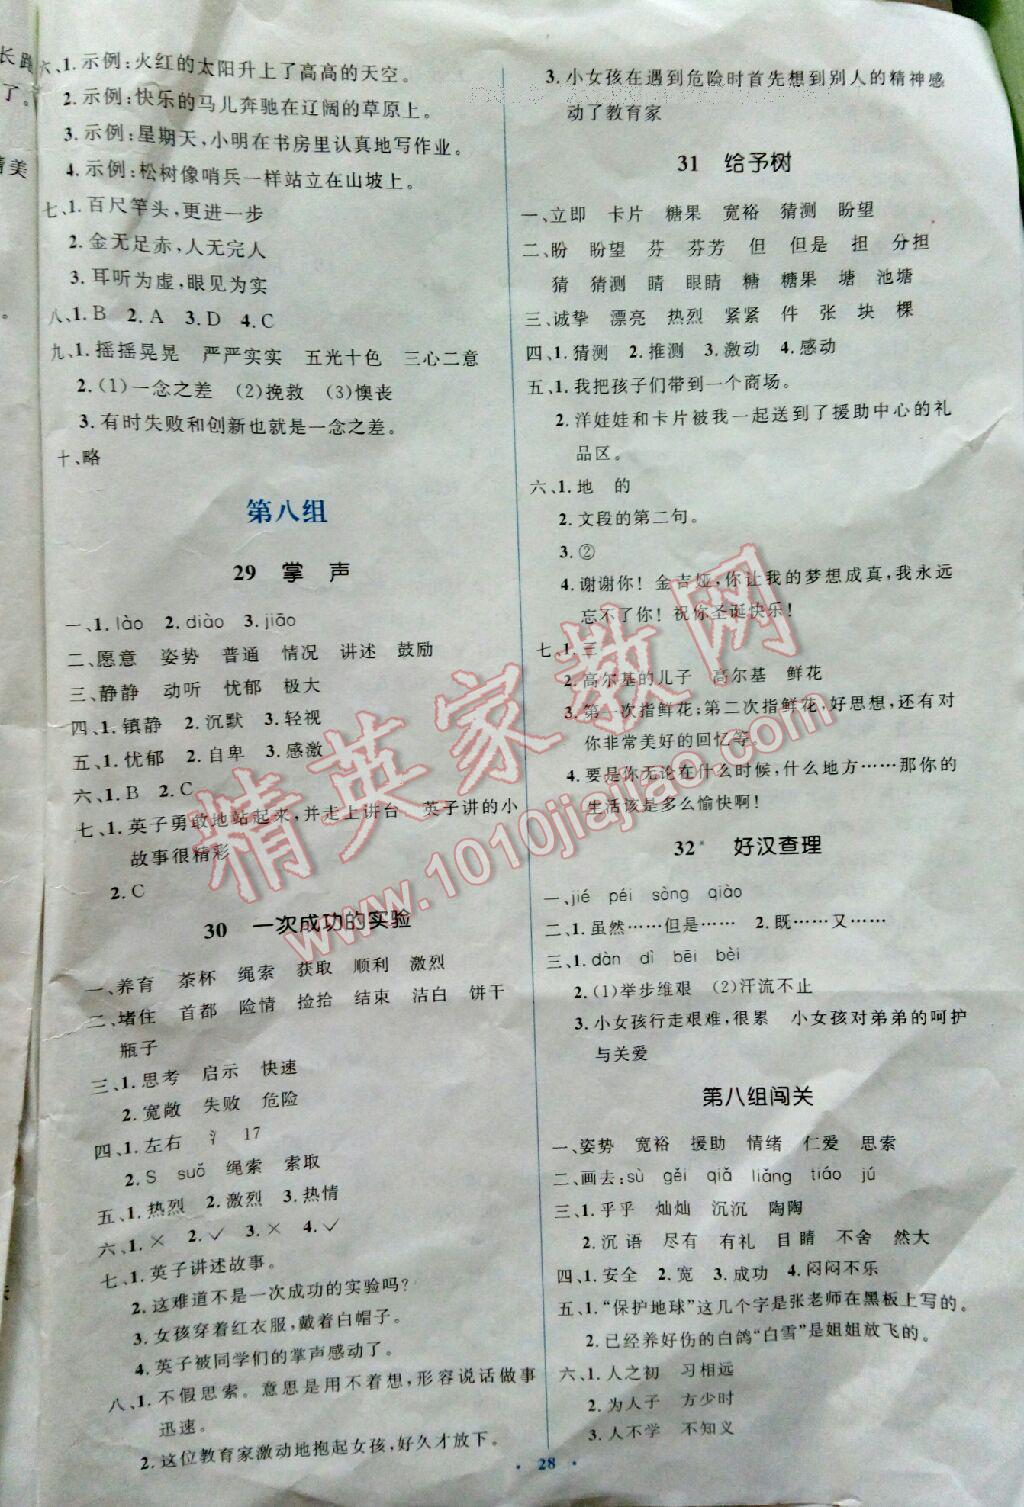 长跑
了。
情美
六、1. 示例:火红的太阳升上了高高的天空。
2. 示例:快乐的马儿奔驰在辽阔的草原上。
3. 示例:星期天,小明在书房里认真地写作业。
4. 示例:松树像哨兵一样站立在山坡上。
七、1. 百尺竿头,更进一步
2. 金无足赤,人无完人
3. 耳听为虚,眼见为实
八、1. B 2. A 3. D 4. C
九、1. 摇摇晃晃 严严实实 五光十色 三心二意
2. (1)一念之差 (2)挽救 (3)懊丧
3. 有时失败和创新也就是一念之差。
十、略
第八组
29 掌 声
一、1. lào 2. diào 3. jiāo
二、愿意 姿势 普通 情况 讲述 鼓励
三、静静 动听 忧郁 极大
四、1. 镇静 2. 沉默 3. 轻视
五、1. 忧郁 2. 自卑 3. 感激
六、1. B 2. C
七、1. 英子勇敢地站起来,并走上讲台 英子讲的小
故事很精彩
2. C
30 一次成功的实验
一、养育 茶杯 绳索 获取 顺利 激烈
二、堵住 首都 险情 捡拾 结束 洁白 饼干
瓶子
三、1. 思考 启示 快速
2. 宽敞 失败 危险
四、1. 左右 氵 17
2. S suǒ 绳索 索取
五、1. 热烈 2. 激烈 3. 热情
六、1. × 2. ✓ 3. × 4. ✓
七、1. 英子讲述故事。
2. 这难道不是一次成功的实验吗?
3. 女孩穿着红衣服,戴着白帽子。
4. 英子被同学们的掌声感动了。
八、1. 不假思索。意思是用不着想,形容说话做事
迅速。
2. 这位教育家激动地抱起女孩,好久才放下。
3. 小女孩在遇到危险时首先想到别人的精神感
动了教育家
31 给予树
一、立即 卡片 糖果 宽裕 猜测 盼望
二、盼 盼望 芬 芬芳 但 但是 担 分担
猜 猜测 睛 眼睛 糖 糖果 塘 池塘
三、诚挚 漂亮 热烈 紧紧 件 张 块 棵
四、1. 猜测 2. 推测 3. 激动 4. 感动
五、1. 我把孩子们带到一个商场。
2. 洋娃娃和卡片被我一起送到了援助中心的礼
品区。
六、1. 地 的
2. 文段的第二句。
3. ②
4. 谢谢你!金吉娅,你让我的梦想成真,我永远
忘不了你!祝你圣诞快乐!
七、1. 三
2. 高尔基的儿子 高尔基 鲜花
3. 第一次指鲜花;第二次指鲜花,好思想,还有对
你非常美好的回忆等
4. 要是你无论在什么时候,什么地方……那你的
生活该是多么愉快啊!
32* 好汉查理
一、jié péi sòng qiào
二、1. 虽然……但是…… 2. 既……又……
三、1. dàn dì bēi bèi
2. (1)举步维艰 (2)汗流不止
3. 小女孩行走艰难,很累 小女孩对弟弟的呵护
与关爱
第八组闯关
一、姿势 宽裕 援助 情绪 仁爱 思索
二、画去:sù gěi qiǎ liǎng tiáo jú
三、1. 乎乎 灿灿 沉沉 陶陶
2. 沉 语 尽有 有礼 目睛 不舍 然大
四、1. 安全 2. 宽 3. 成功 4. 闷闷不乐
五、1. “保护地球”这几个字是张老师在黑板上写的。
2. 已经养好伤的白鸽“白雪”是姐姐放飞的。
六、1. 人之初 习相远
2. 为人子 方少时
3. 人不学 不知义
· 28 ·
精英家教网
www.1010jiajiao.com